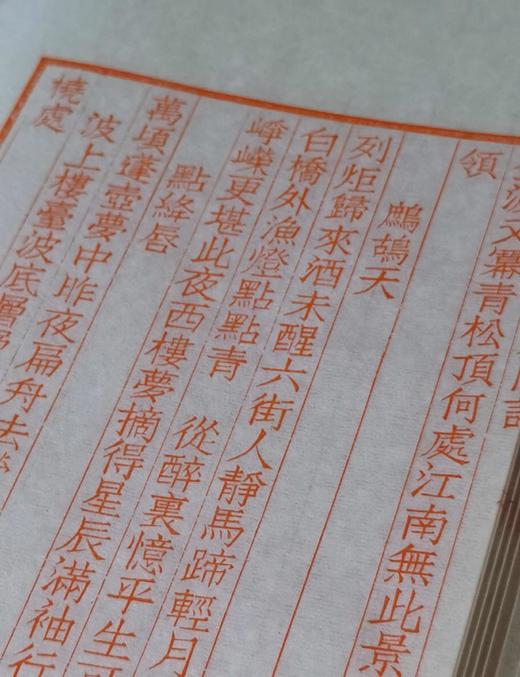 波又冪青松頂何處江南無此景
領
鷓鴣天
列炬歸來酒未醒六街人靜馬蹄輕月
白橋外漁燈點點青　從醉裏憶平生
崢嶸更堪此夜西樓夢摘得星辰滿袖行
點絳唇
萬頃蓬壺夢中昨夜扁舟去
波上樓臺波底層
燒處